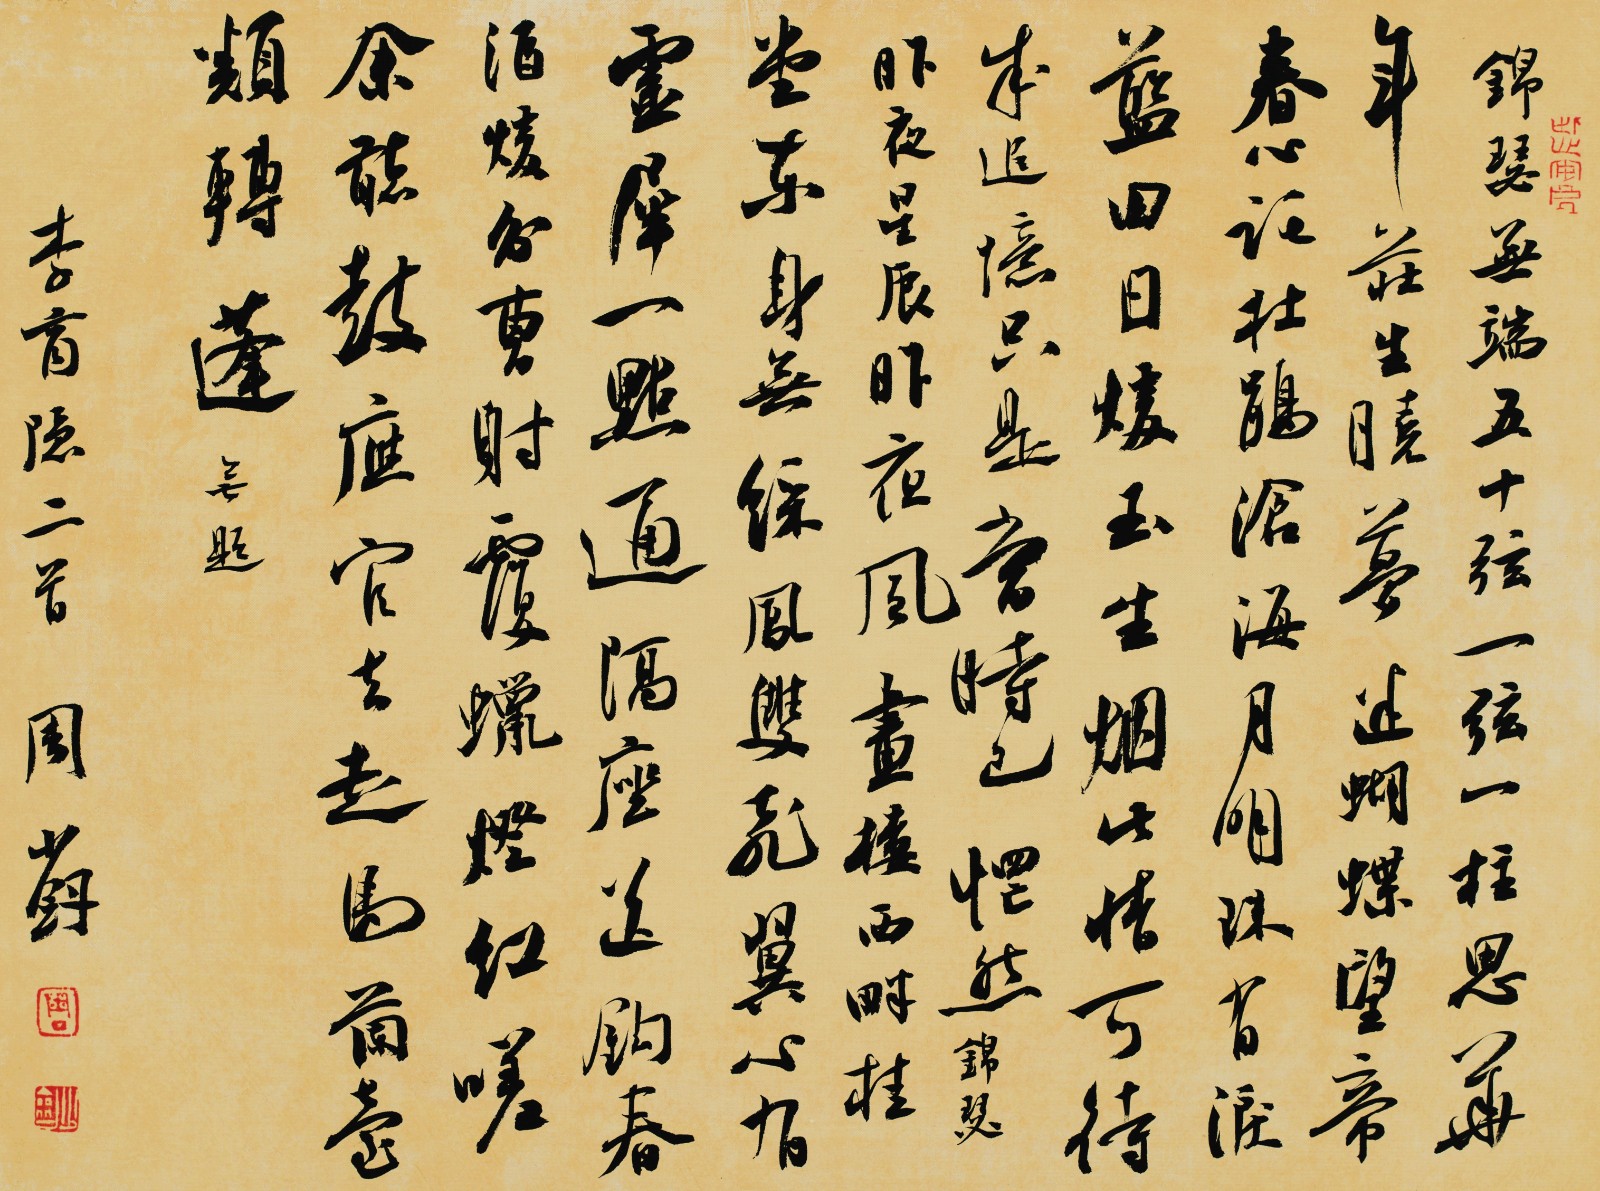 錦瑟無端五十弦一弦一柱思華
年莊生曉夢迷蝴蝶望帝
春心託杜鵑滄海月明珠有淚
藍田日煖玉生烟此情可待
成追憶只是當時已惘然 錦瑟
昨夜星辰昨夜風畫樓西畔桂
堂東身無綵鳳雙飛翼心有
靈犀一點通隔座送鉤春
酒煖分曹射覆蠟燈紅嗟
余聽鼓應官去走馬蘭臺
類轉蓬 無題
李商隱二首 周